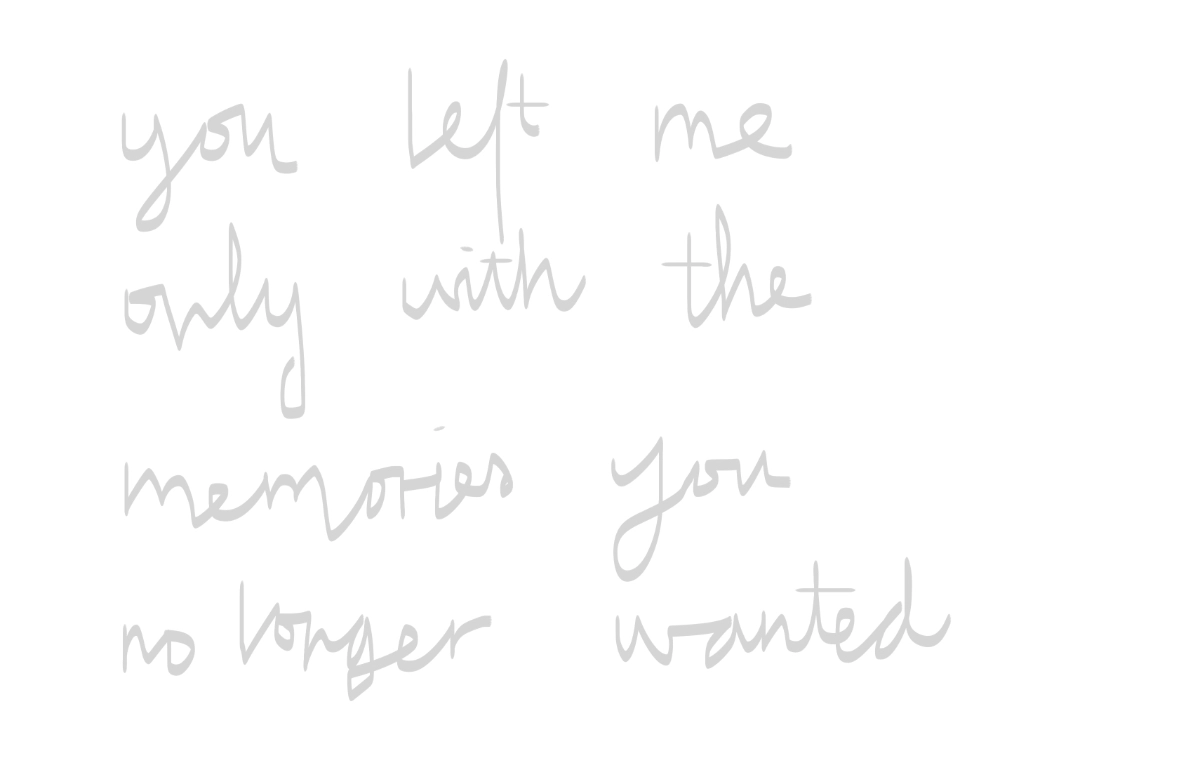 you left me
only with the
memories you
no longer wanted